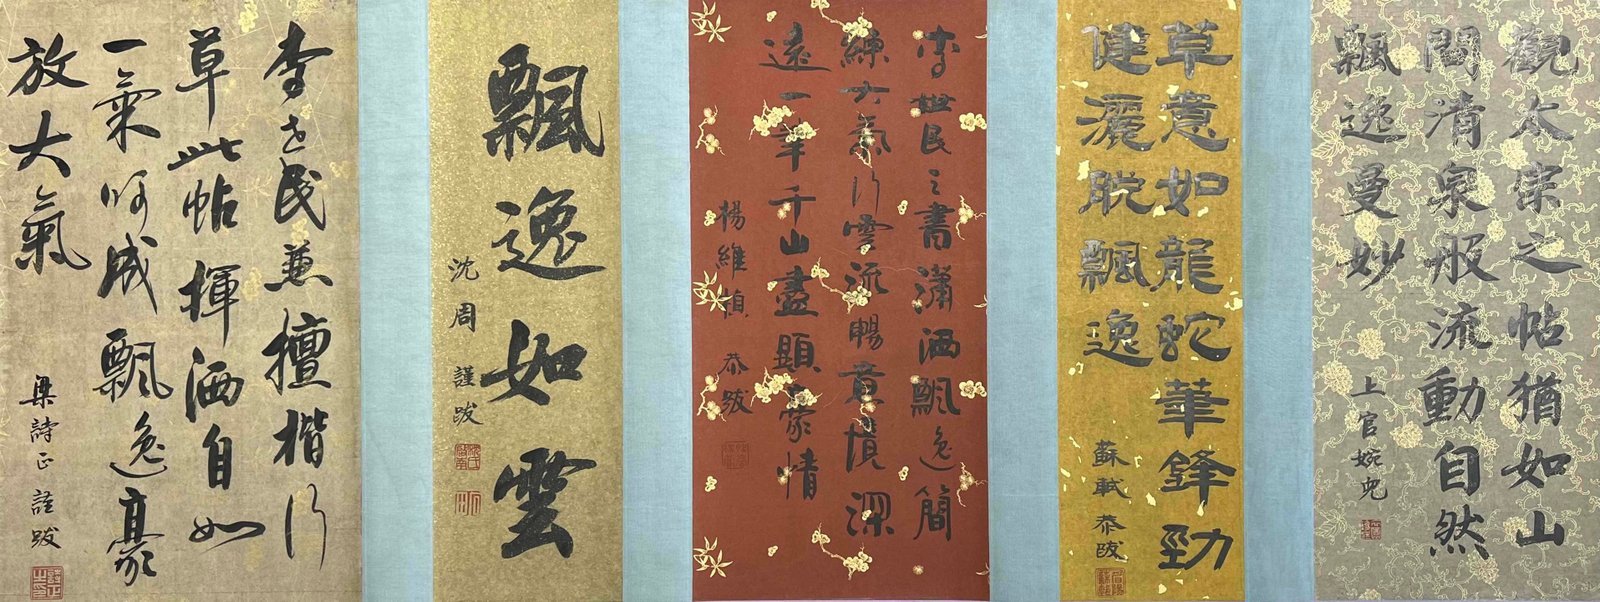 觀太宗之帖猶如山
間清泉般流動自然
飄逸曼妙
上官婉兒
草意如龍蛇華鋒勁
健灑脫飄逸
蘇軾恭跋
李世民之書瀟洒飄逸簡
練大氣行雲流暢意境深
遠一筆千山盡顯豪情
楊維楨 恭跋
飄逸如雲
沈周謹跋
李世民兼擅楷行
草此帖揮洒自如
一氣呵成飄逸豪
放大氣
梁詩正謹跋